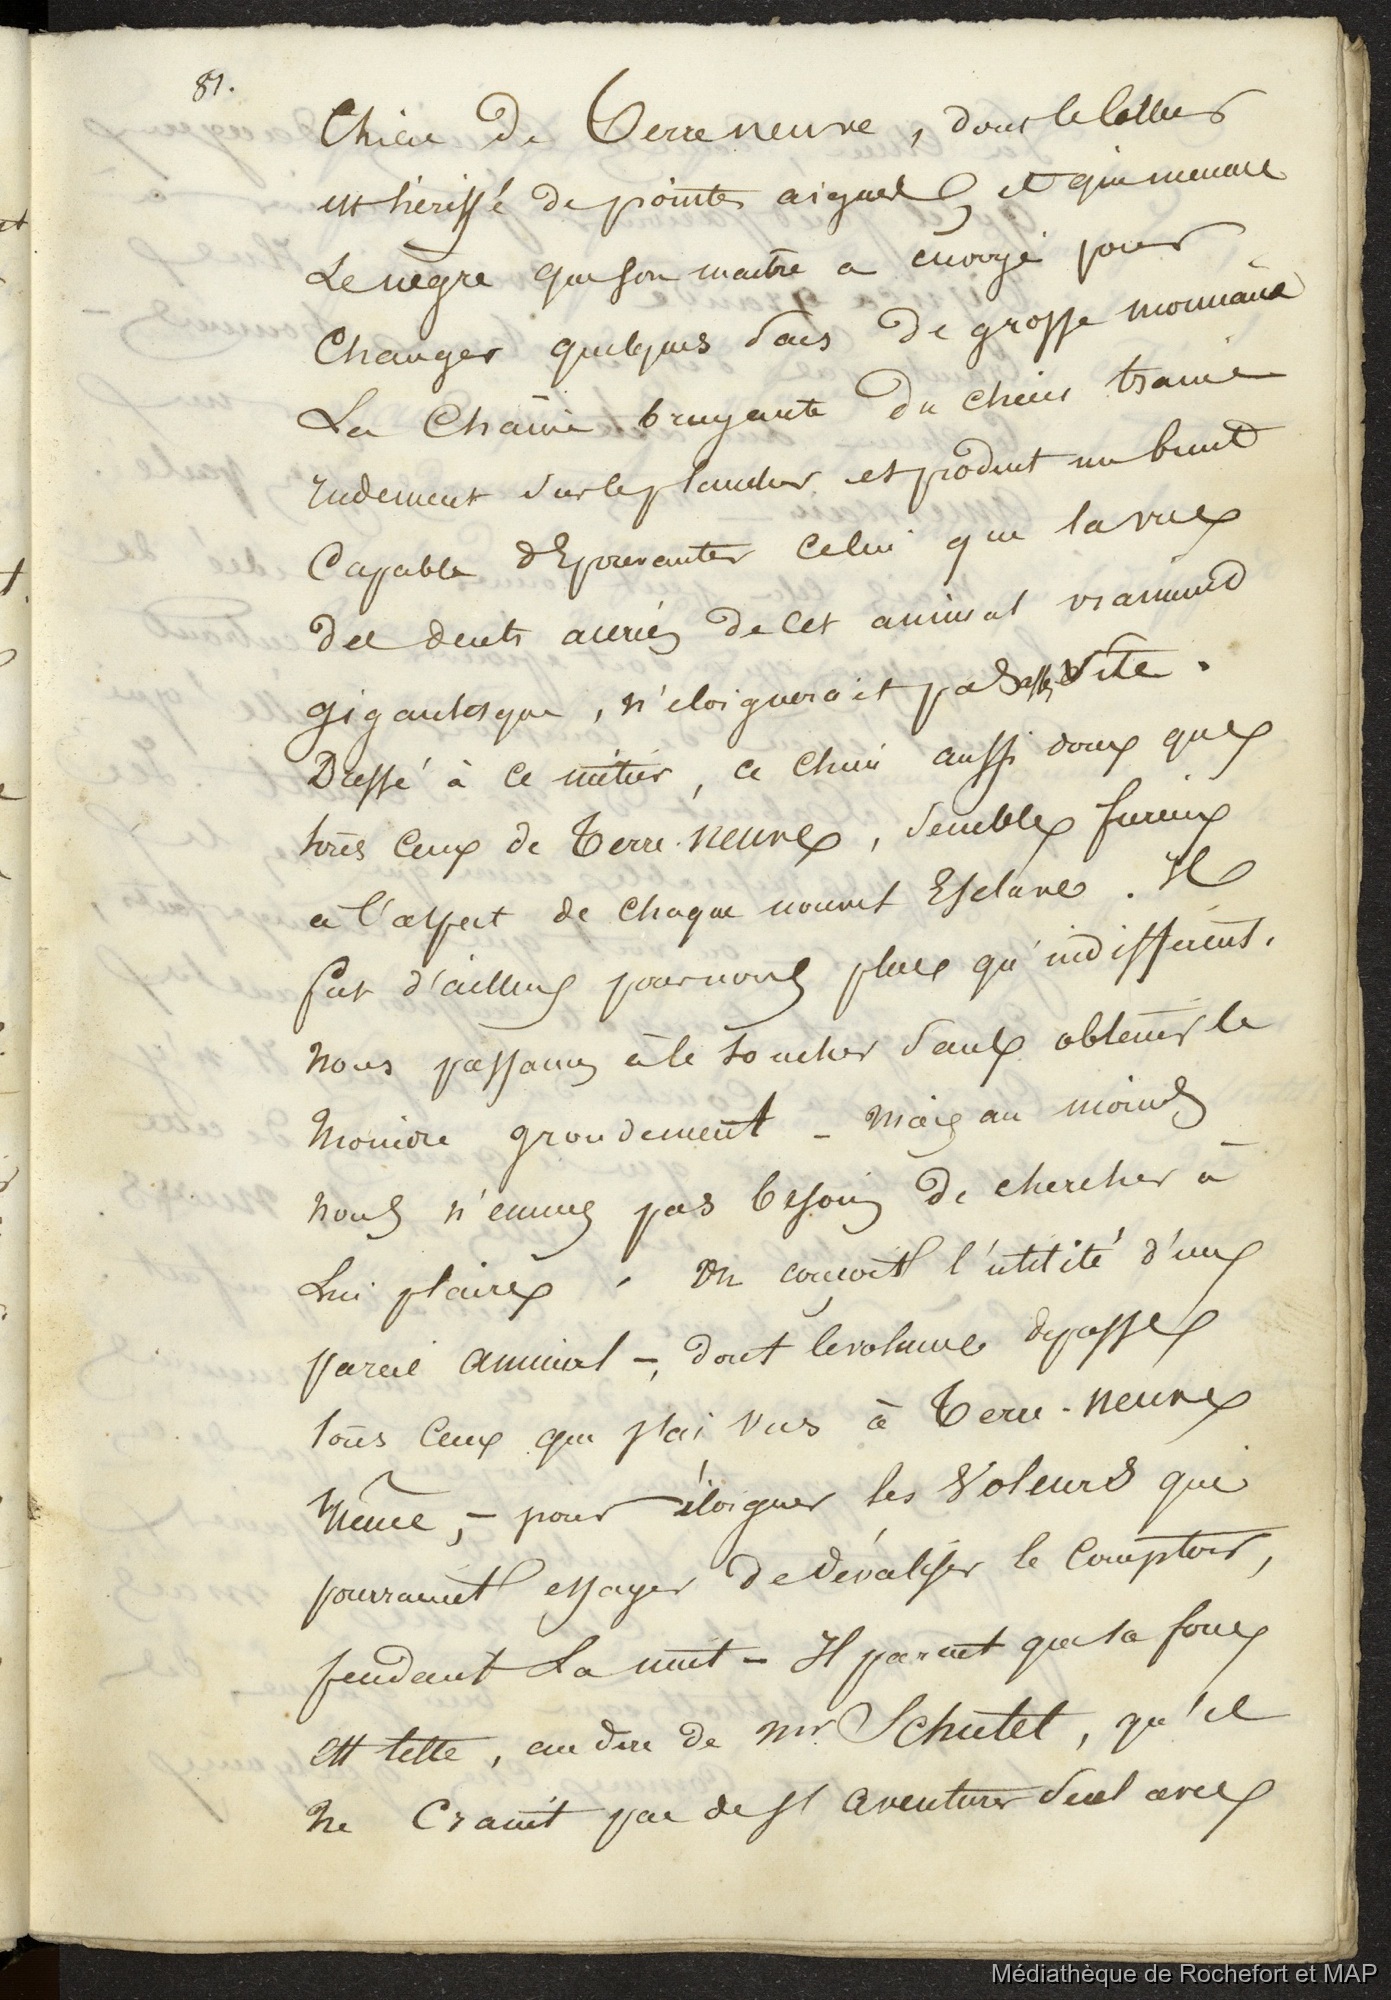 81.
Chien de Terre neuve, dont le collier
est hérissé de pointes aigues, et qui menace
Le nègre que son maitre a envoyé pour
Changer quelques sacs de grosse monnaie
La Chaîne bruyante du chien traine
rudement sur le plancher et produit un bruit
Capable d'Epouvanter celui que la vue
des dents acérées de cet animal vraiment
gigantesque, n'eloignerait pas assez vite.
Dressé à ce métier, ce chien aussi doux que
tous ceux de Terre-neuve, semble furieux
a l'aspect de chaque nouvel Esclave. Il
fut d'ailleurs pour nous plus qu'indifférent.
nous passames à le toucher sans obtenir le
Moindre grondement - Mais au moins
nous n'eumes pas besoin de chercher à
Lui plaire. On conçoit l'utilité d'un
pareil animal -, dont le volume dépasse
tous ceux que j'ai vus à Terre-neuve
Même, - pour éloigner les voleurs qui
pourraient essayer de dévaliser le Comptoir,
pendant La nuit - Il parait que sa force
est telle, au dire de Mr Schutel, qu'il
ne Craint pas de s'aventurer seul avec
Médiathèque de Rochefort et MAP